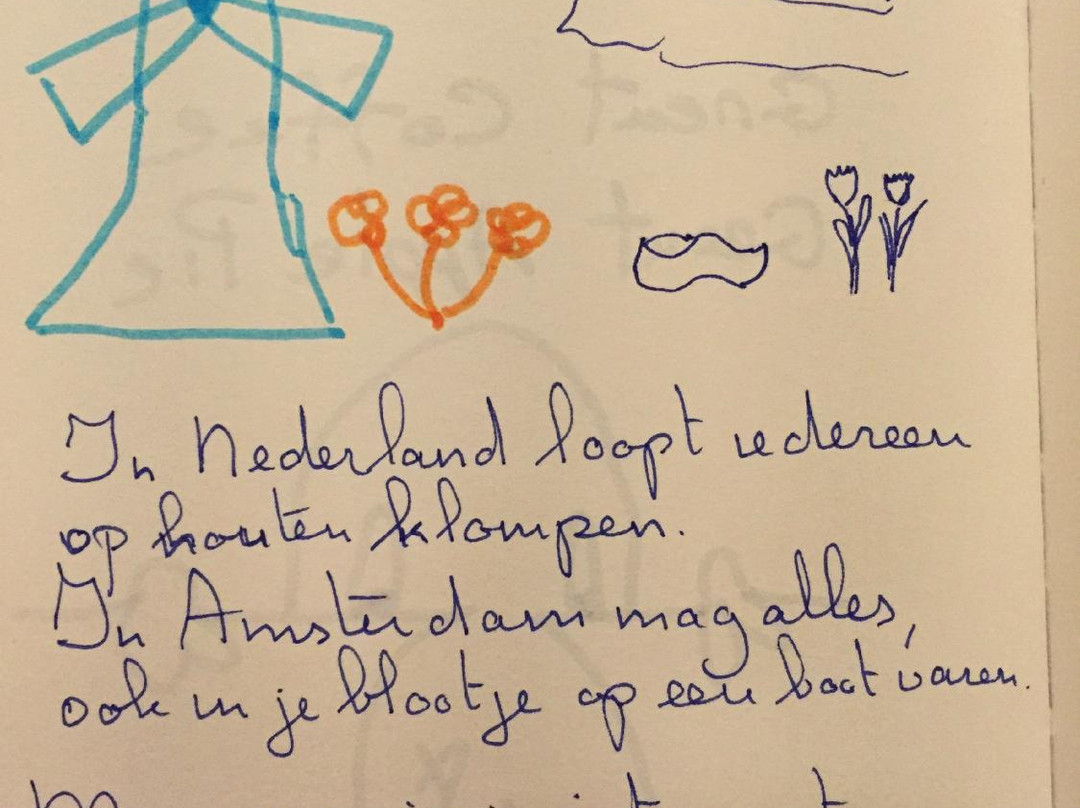 In Nederland loopt iedereen
op houten klompen.
In Amsterdam mag alles,
ook in je blootje op een boot varen.